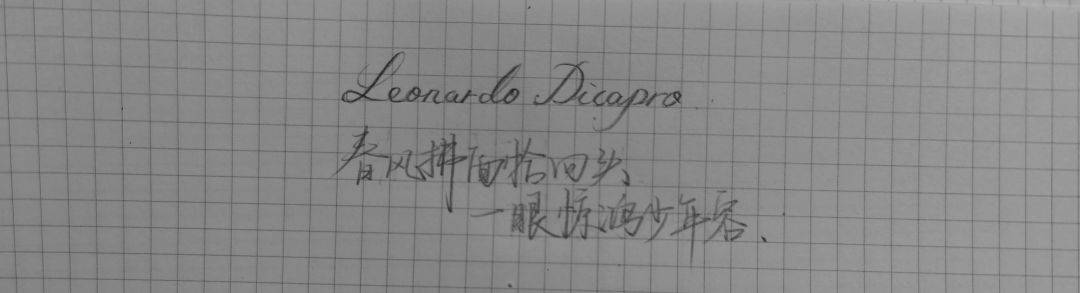 Leonardo Dicapro
春风拂面恰回头、
一眼惊鸿少年容.